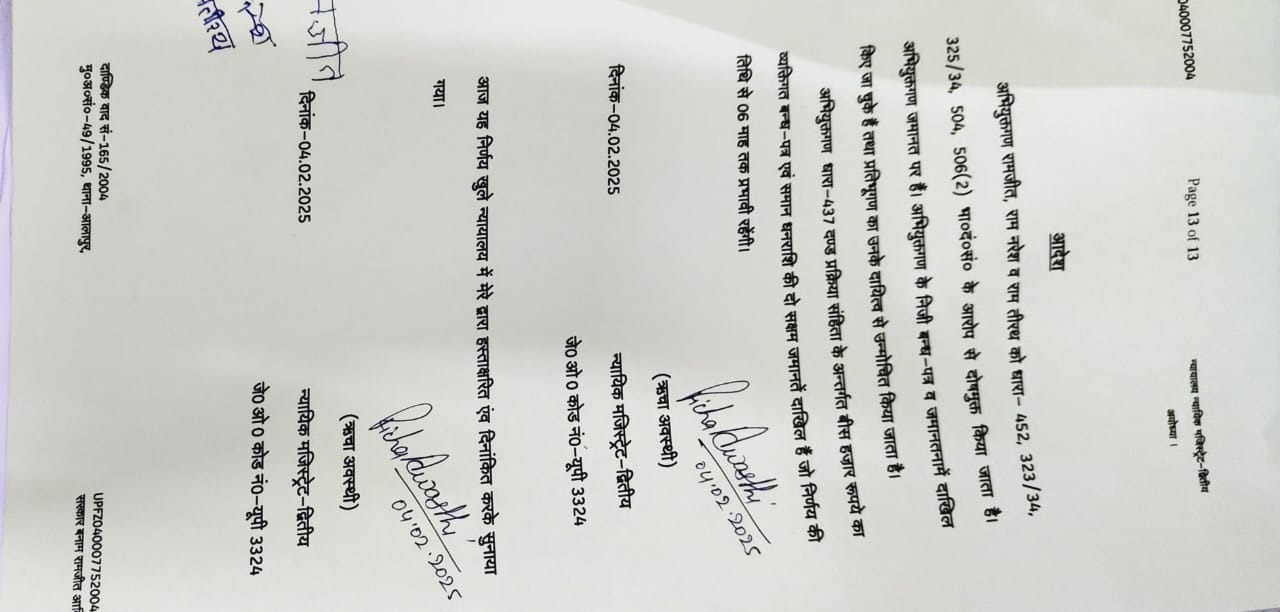 040007752004
Page 13 of 13
न्यायालय न्यायिक मजिस्ट्रेट-द्वितीय
अयोध्या ।
आदेश
अभियुक्तगण रामजीत, राम नरेश व राम तीरथ को धारा- 452, 323/34,
325/34, 504, 506(2) भा०दं०सं० के आरोप से दोषमुक्त किया जाता है।
अभियुक्तगण जमानत पर हैं। अभियुक्तगण के निजी बन्ध-पत्र व जमानतनामें दाखिल
किए जा चुके हैं तथा प्रतिभूगण का उनके दायित्व से उन्मोचित किया जाता है।
अभियुक्तगण धारा-437 दण्ड प्रक्रिया संहिता के अन्तर्गत बीस हजार रूपये का
व्यक्तिगत बन्ध-पत्र एवं समान धनराशि की दो सक्षम जमानतें दाखिल हैं जो निर्णय की
तिथि से 06 माह तक प्रभावी रहेंगी।
Richa Awasthi
04.02.2025
(ऋचा अवस्थी)
दिनांक-04.02.2025
न्यायिक मजिस्ट्रेट-द्वितीय
जे0 ओ 0 कोड नं0-यूपी 3324
आज यह निर्णय खुले न्यायालय में मेरे द्वारा हस्ताक्षरित एंव दिनांकित करके सुनाया
गया।
Richa Awasthi
04.02.2025
(ऋचा अवस्थी)
दिनांक-04.02.2025
न्यायिक मजिस्ट्रेट-द्वितीय
जे0 ओ 0 कोड नं0-यूपी 3324
दाण्डिक वाद सं-165/2004
मु०अ०सं०-49/1995, थाना-आलापुर,
UPFZ040007752004
सरकार बनाम रामजीत आदि